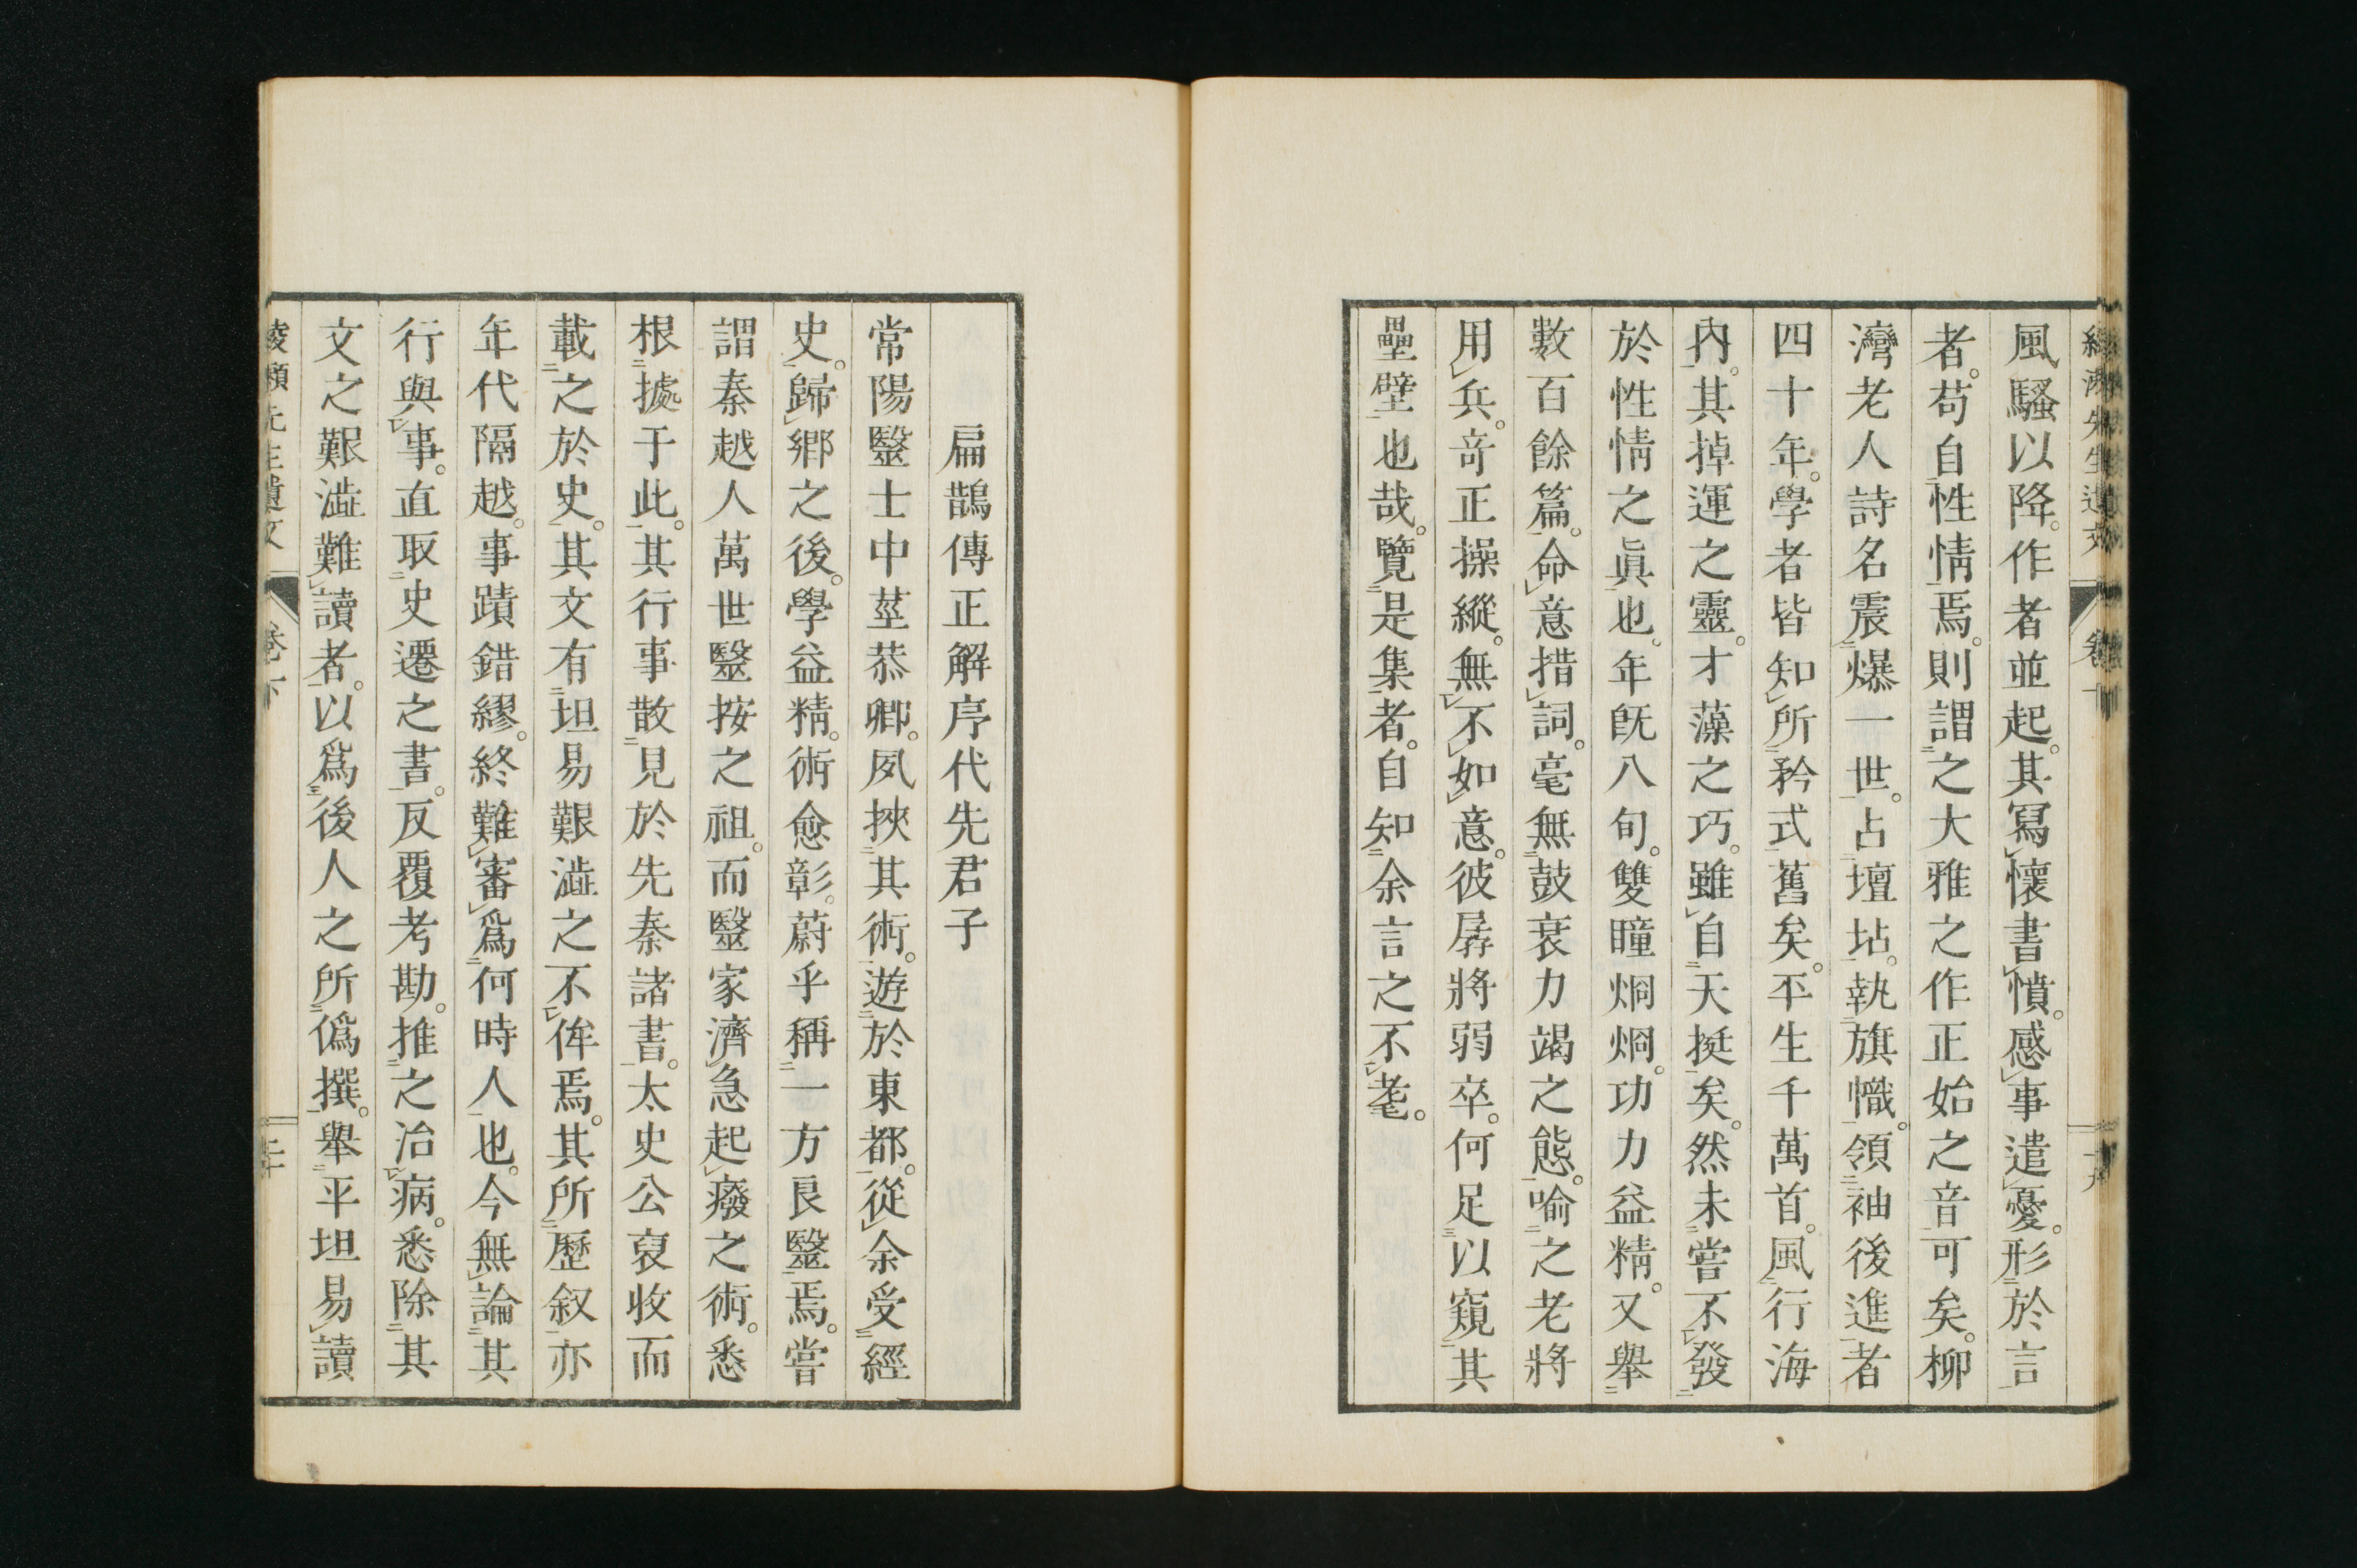 風騷以降。作者並起。其寫懷書憤。感事遣憂。形於言
者。苟自性情焉。則謂之大雅之作正始之音可矣。柳
灣老人詩名震爆一世。占壇坫。執旗幟。領袖後進者
四十年。學者皆知所矜式舊矣。平生千萬首。風行海
內。其掉運之靈。才藻之巧。雖自天挺矣。然未嘗不發
於性情之眞也。年旣八旬。雙瞳烱烱。功力益精。又舉
數百餘篇。命意措詞。毫無鼓衰力竭之態。喻之老將
用兵。竒正操縱。無不如意。彼孱將弱卒。何足以窺其
壘壁也哉。覽是集者。自知余言之不耄。
扁鵲傳正解序代先君子
常陽醫士中莖恭卿。夙挾其術。遊於東都。從余受經
史。歸鄉之後。學益精。術愈彰。蔚乎稱一方良醫焉。嘗
謂秦越人萬世醫按之祖。而醫家濟急起癈之術。悉
根據于此。其行事散見於先秦諸書。太史公裒收而
載之於史。其文有坦易艱澁之不侔焉。其所歷叙亦
年代隔越。事蹟錯繆。終難審爲何時人也。今無論其
行與事。直取史遷之書。反覆考勘。推之治病。悉除其
文之艱澁難讀者。以爲後人之所僞撰。舉平坦易讀
先生遺文 卷下